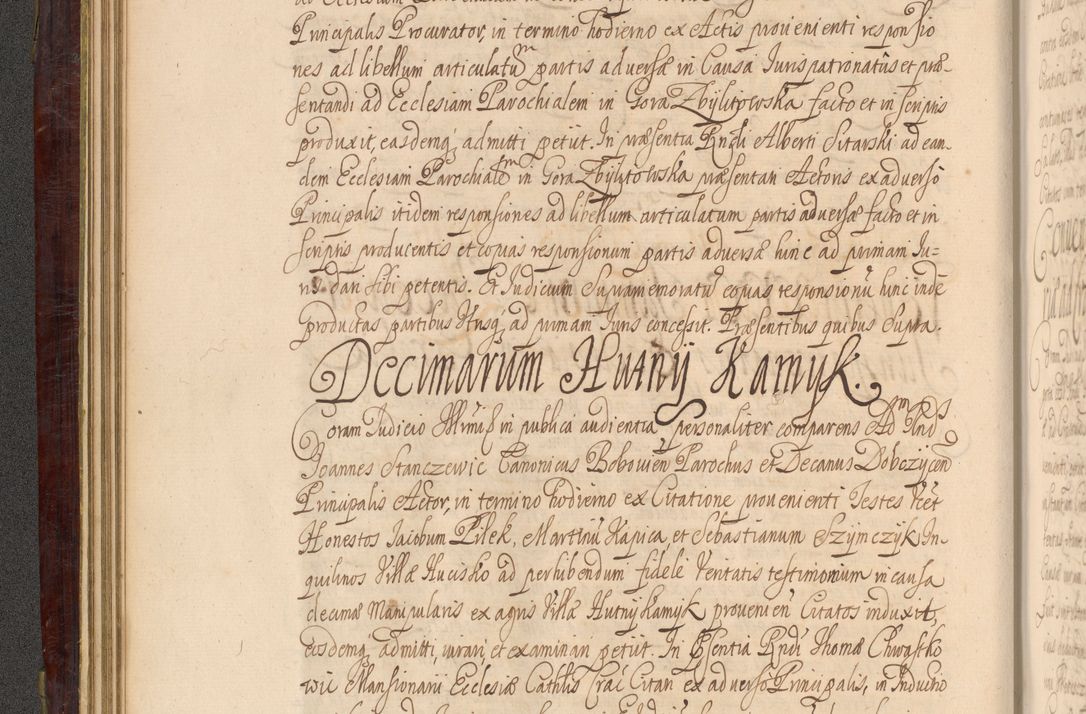 Principalis Procurator, in termino hodierno ex Actis provenienti responsio
nes ad libellum articulatũ partis adversæ in Causa Iuris patronatûs et præ-
sentandi ad Ecclesiam Parochialem in Gora Zbylitowska facto et in scriptis
produxit, easdemq; admitti petiit. In præsentia Rndi Alberti Sitarski ad ean-
dem Ecclesiam Parochialẽ in Gora Zbylitowska præsentati Actoris ex adverso
Principalis itidem responsiones ad libellum articulatum partis adversæ facto et in
scriptis producentis et copias responsionum partis adversæ hinc ad primam Iu-
ris dari sibi petentis. Et Iudicium Supramemoratũ copias responsionũ hinc inde
productas partibus utrisq; ad primam Iuris concessit. Præsentibus quibus supra.
Decimarum Hutny Kamyk.
Coram Iudicio Illmi in publica audientia personaliter comparens Adm Rnds
Joannes Stanczewic Canonicus Bobovien Parochus et Decanus Dobczycen
Principalis Actor, in termino hodierno ex Citatione provenienti Testes
Honestos Iacobum Pilek, Martinũ Kapica, et Sebastianum Szymczyk In-
quilinos Villæ Hucisko ad perhibendum fideli Veritatis testimonium in causa
decimæ Manipularis ex agris Villæ Hutny Kamyk provenien Citatos induxit,
eosdemq; admitti, iurari, et examinari petiit. In Psentia Rndi Thomæ Chwastko
wic Mansionarii Ecclesiæ Cathlis Crac Citati ex adverso Principalis, in Inductio